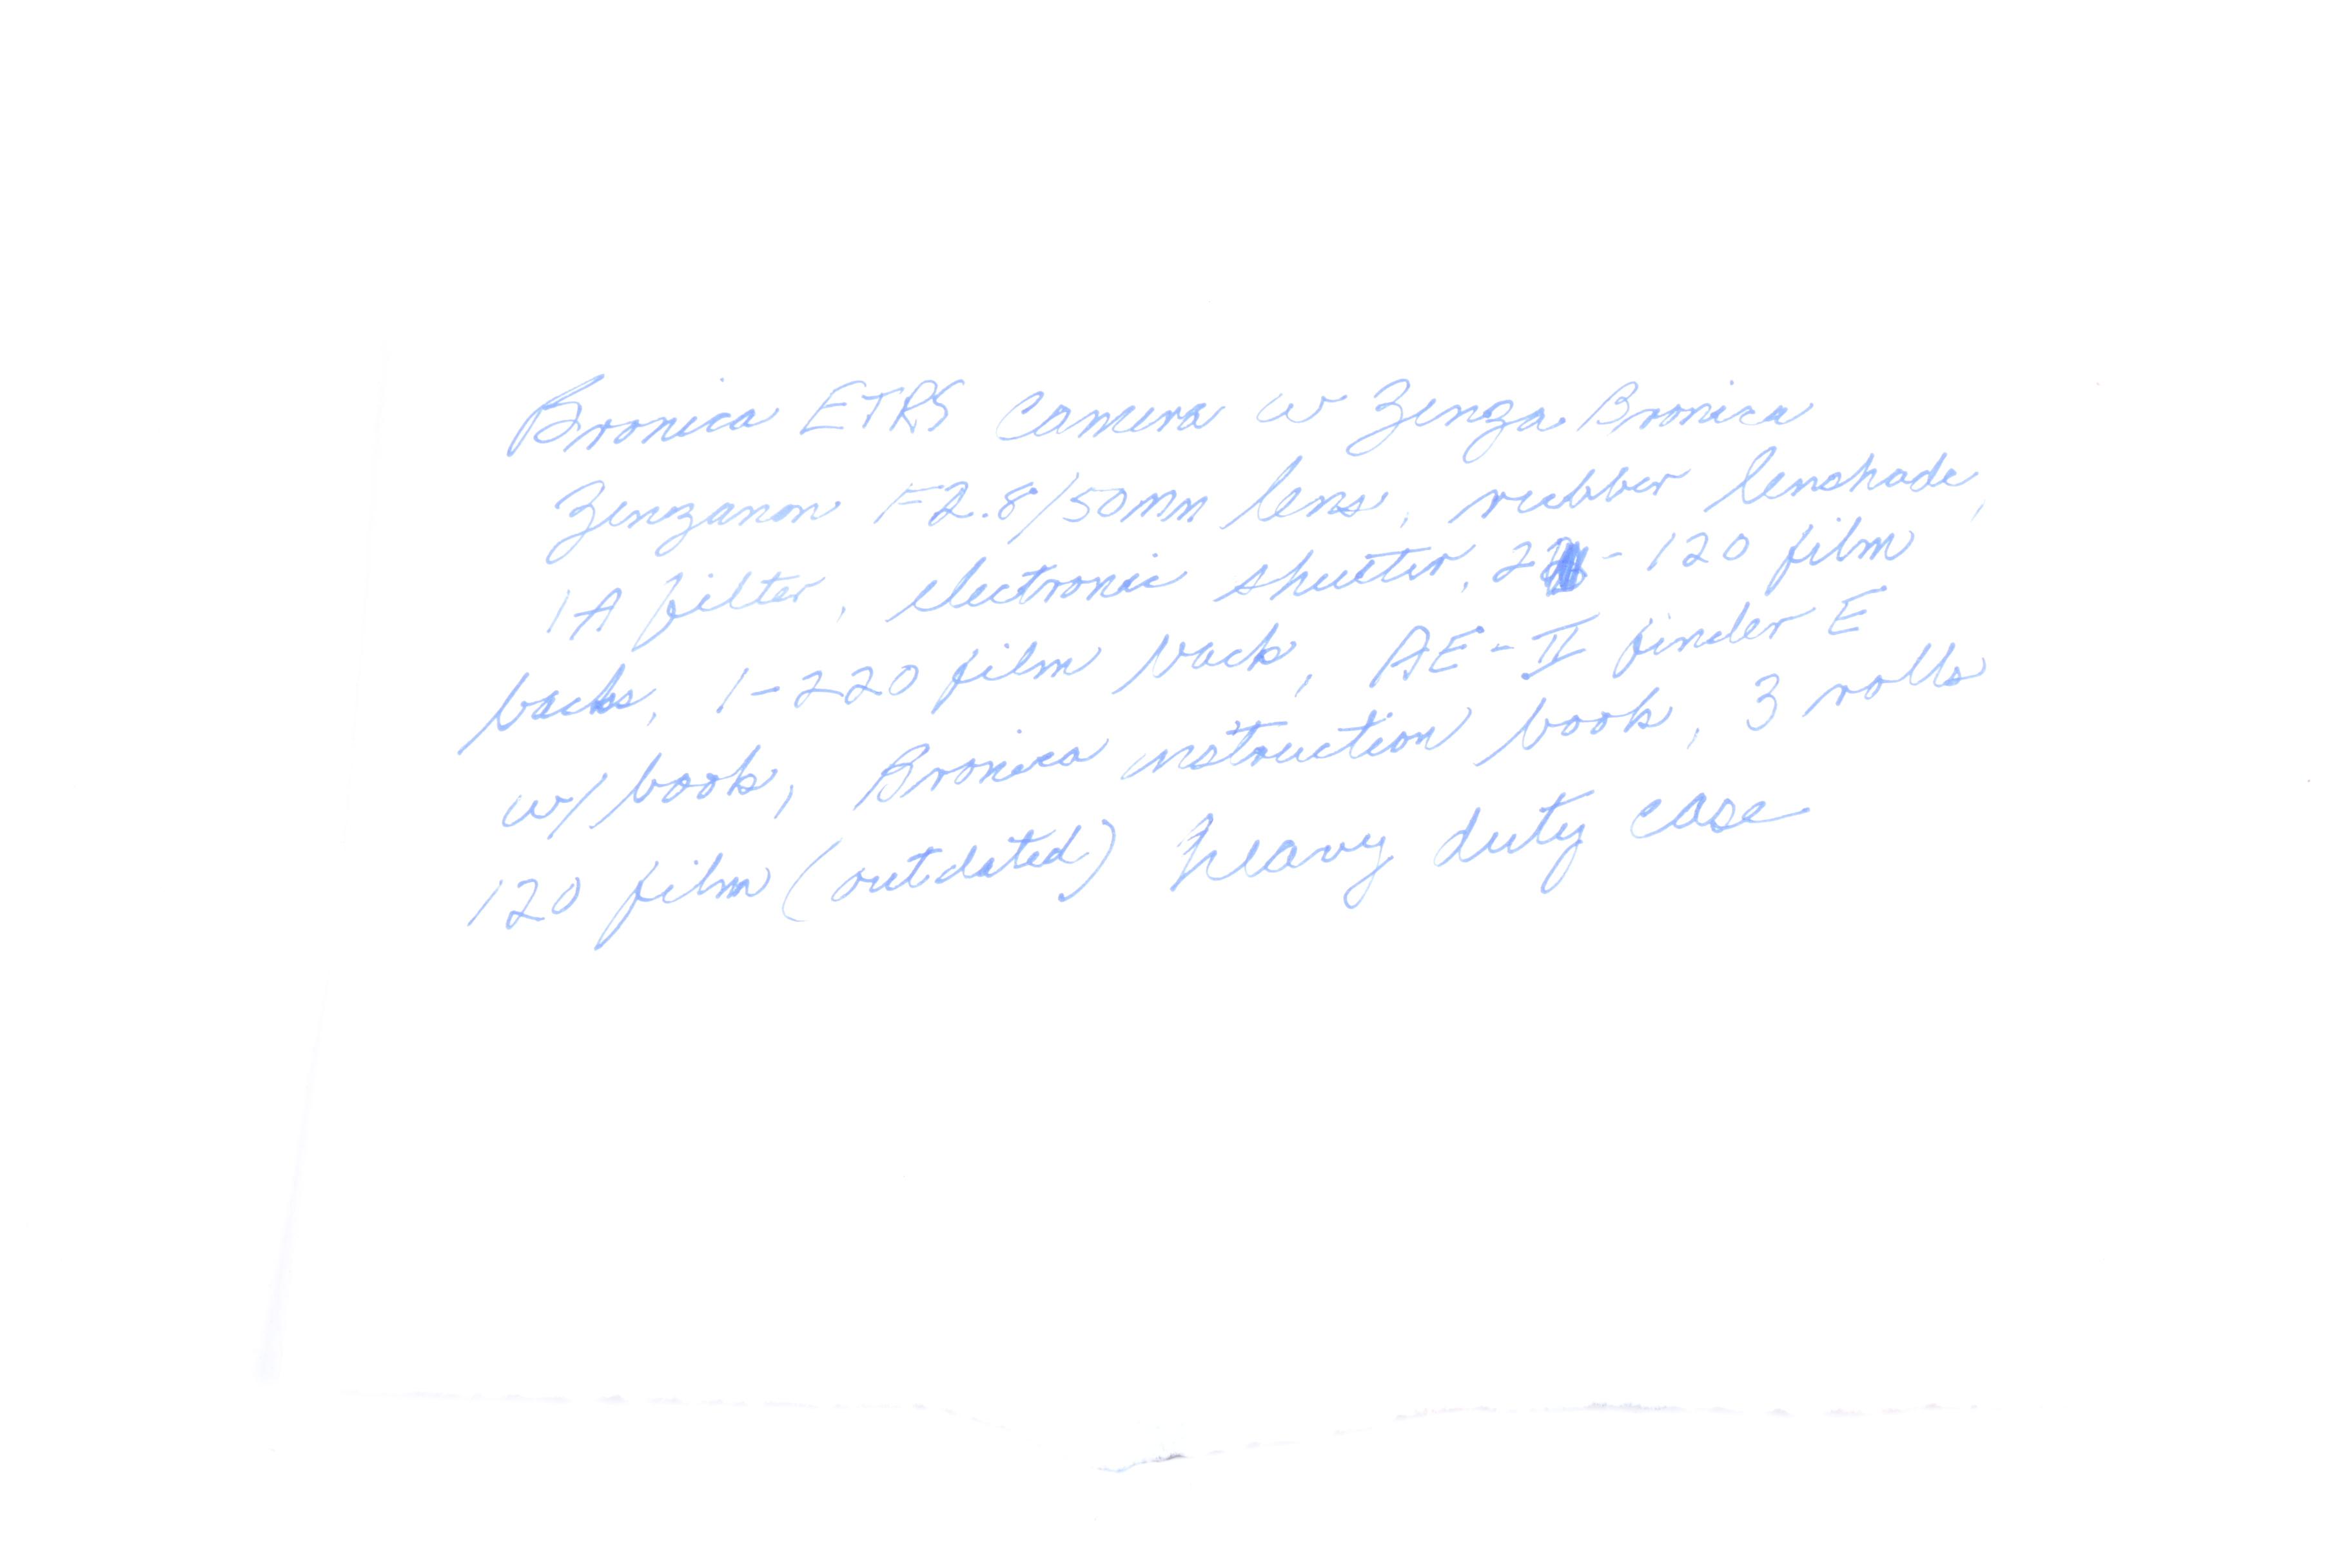 Bronica ETRS Camera w Zenza Bronica
Zenzanon F2.8/50mm lens, rubber lenshade,
1A filter, electronic shutter, 2 - 120 film
backs, 1-220 film back, AE-II finder E
w/book, Bronica instruction book, 3 rolls
120 film (outdated) heavy duty case